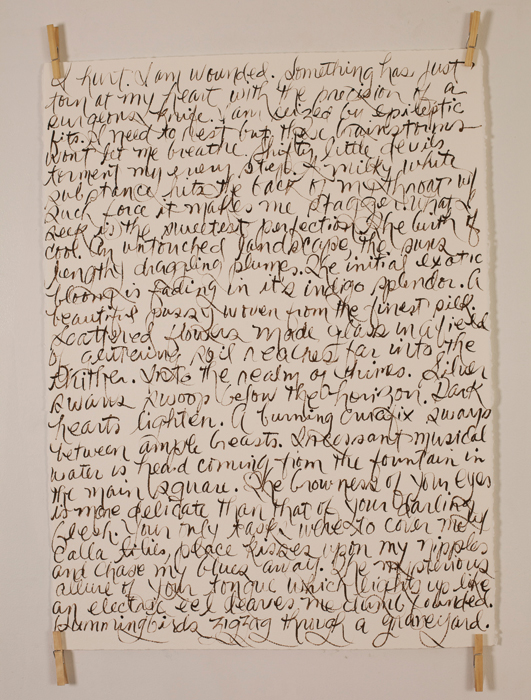 I hurt. I am wounded. Something has just
torn at my heart with the precision of a
surgeons knife. I am seized by epileptic
fits. I need to rest but these brainstorms
wont let me breathe. Shifty little devils
torment my every step. A milky white
substance hits the back of my throat w/
such force it makes me stagger. What I
seek is the sweetest perfection. The birth of
cool. An untouched landscape, the suns
lengthy draggling plumes. The initial exotic
bloom is fading in it's indigo splendor. A
beautiful pussy woven from the finest silk.
Scattered flowers made glass in a field
of glittering soil reaches far into the
thither. Into the realm of shires. Silver
swans swoop below the horizon. Dark
hearts lighten. A burning crucifix sways
between ample breasts. Incessant musical
water is heard coming from the fountain in
the main square. The brownness of your eyes
is more delicate than that of your darling
flesh. Your only task were to cover me w/
Calla lilies, place kisses upon my nipples
and chase my blues away. The mysterious
allure of your tongue which lights up like
an electric eel leaves me dumbfounded.
Hummingbirds zigzag through a graveyard.